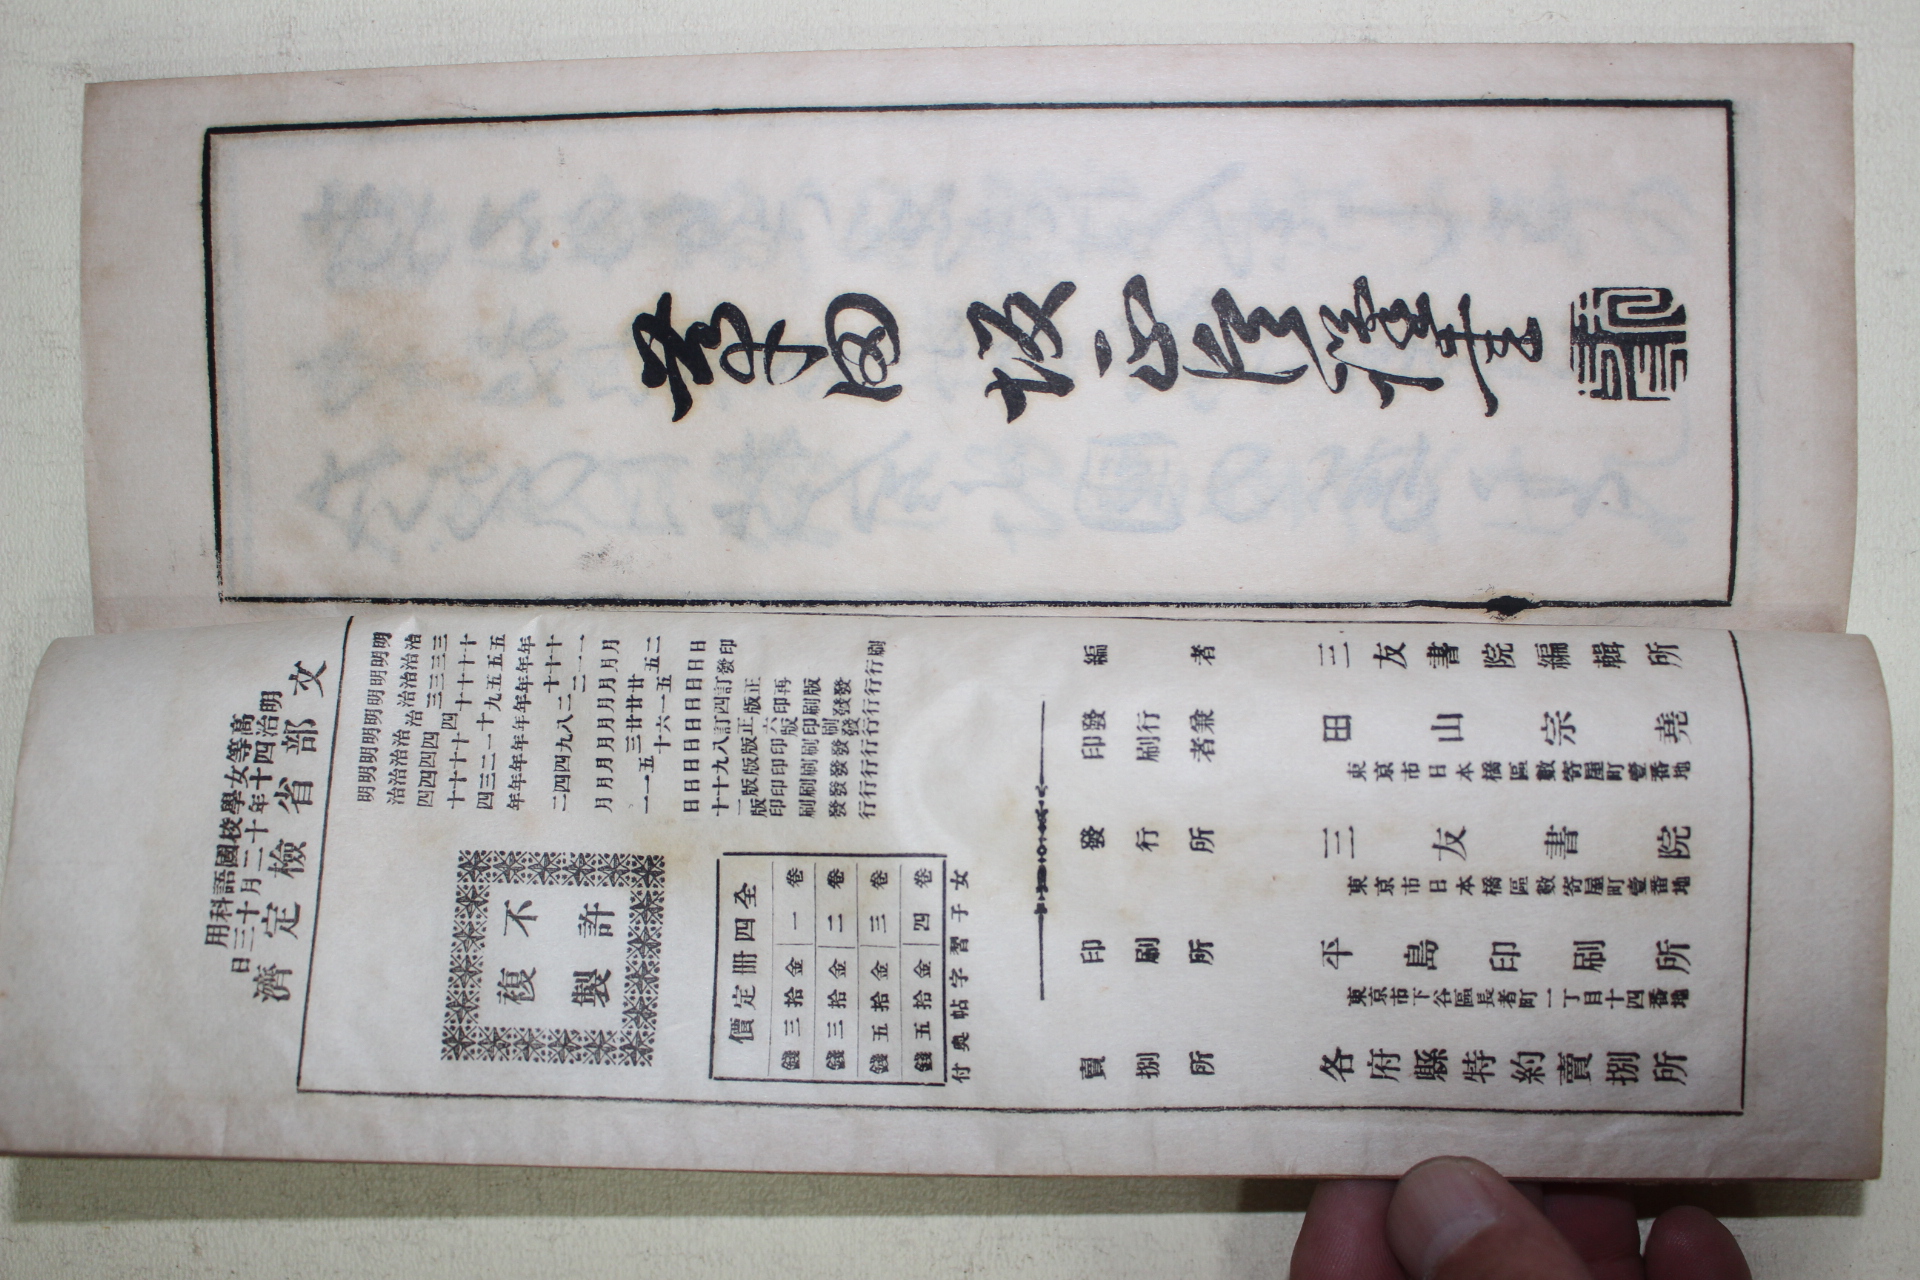 坂正臣謹書
高等女學校國語科用
明治四十年十二月十三日
文部省檢定濟
明治三十五年十一月二日印刷
明治三十五年十一月五日發行
明治三十五年十二月廿五日訂正再版發行
明治三十九年二月廿一日四版印刷發行
明治四十年八月廿六日訂正六版印刷發行
明治四十一年九月三十日八版印刷發行
明治四十二年四月五日九版印刷發行
明治四十三年四月一日十版印刷發行
明治四十四年二月一日十一版印刷發行
不許
複製
全四冊定價
卷一 金拾三錢
卷二 金拾三錢
卷三 金拾五錢
卷四 金拾五錢
女子習字帖奧付
編者 三友書院編輯所
發行兼印刷者 田山宗堯
東京市日本橋區數寄屋町壹番地
發行所 三友書院
東京市日本橋區數寄屋町壹番地
印刷所 平島印刷所
東京市下谷區長者町一丁目十四番地
賣捌所 各府縣特約賣捌所